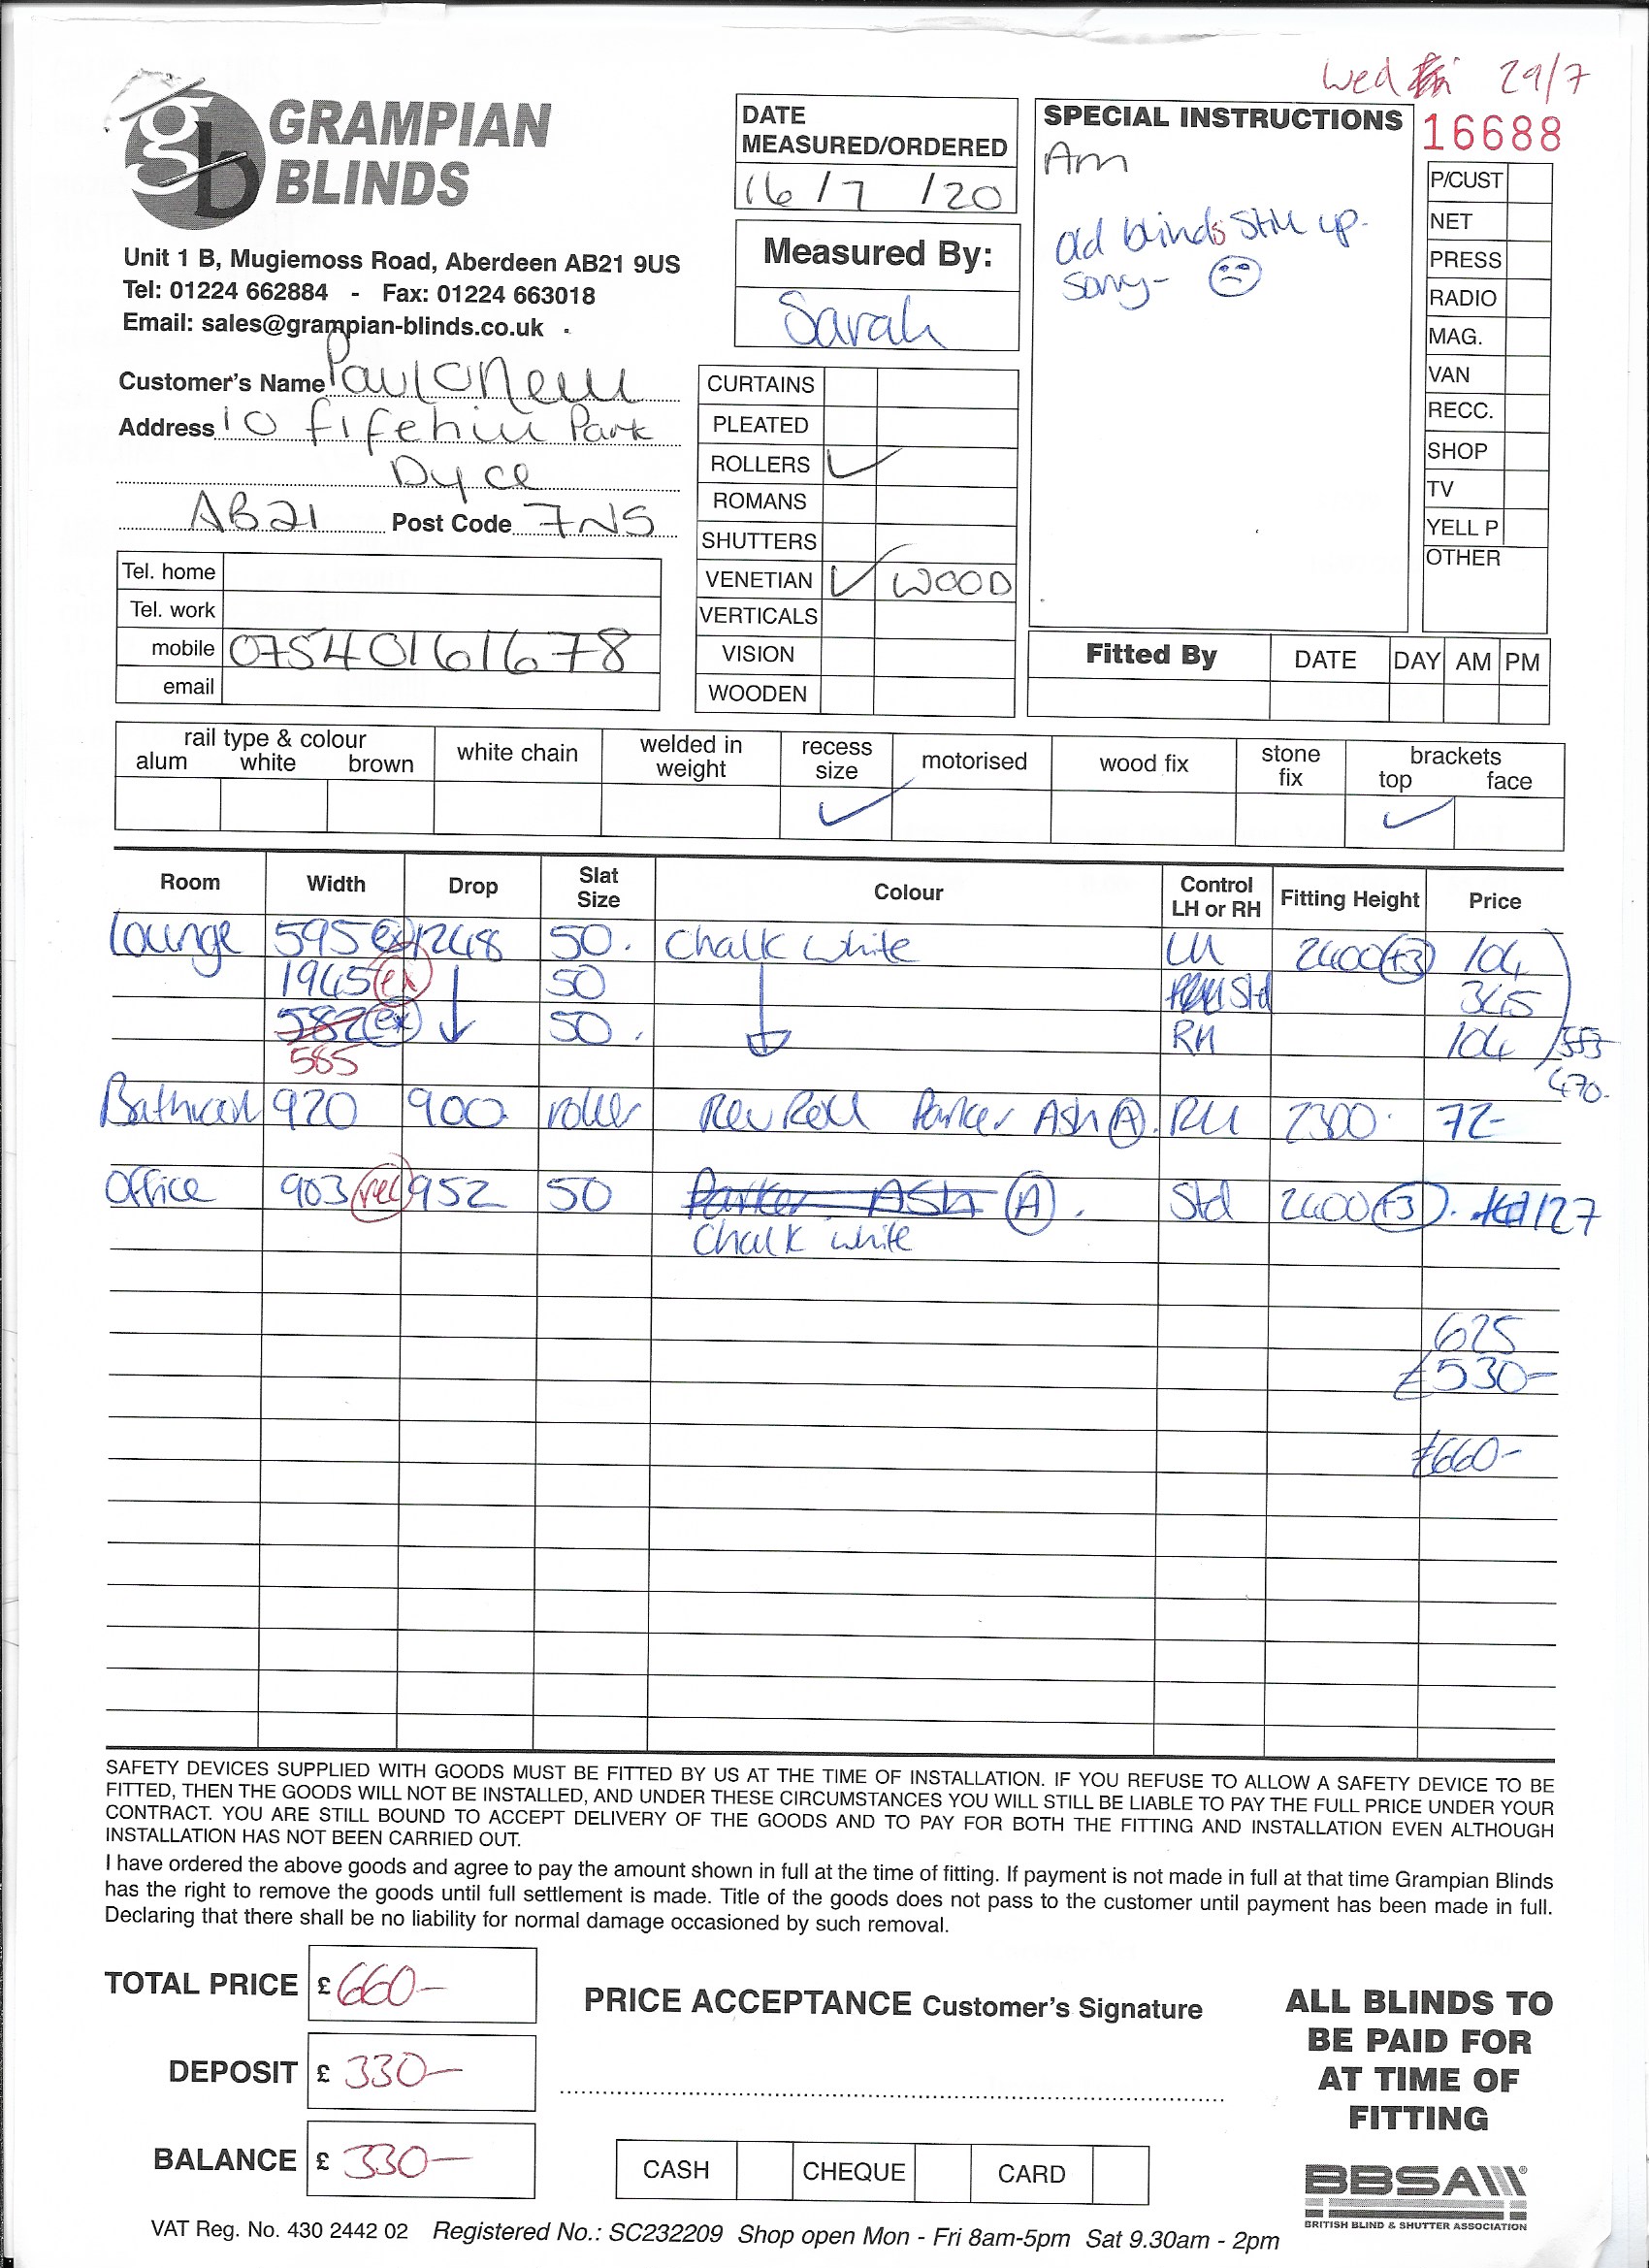 Wed 29/7
GRAMPIAN
BLINDS
Unit 1 B, Mugiemoss Road, Aberdeen AB21 9US
Tel: 01224 662884 - Fax: 01224 663018
Email: sales@grampian-blinds.co.uk
DATE
MEASURED/ORDERED
16/7/20
Measured By:
Sarah
SPECIAL INSTRUCTIONS
Am
old blinds still up.
sorry-
16688
P/CUST
NET
PRESS
RADIO
MAG.
VAN
RECC.
SHOP
TV
YELL P
OTHER
Customer's Name Paul ONeill
Address 10 Fifehill Park
Dyce
AB21 Post Code 7NS
Tel. home
Tel. work
mobile 07540161678
email
CURTAINS
PLEATED
ROLLERS ✓
ROMANS
SHUTTERS
VENETIAN ✓ WOOD
VERTICALS
VISION
WOODEN
Fitted By DATE DAY AM PM
rail type & colour
alum white brown
white chain
welded in
weight
recess
size
✓
motorised
wood fix
stone
fix
brackets
top face
✓
Room Width Drop Slat Size Colour Control LH or RH Fitting Height Price
Lounge 595 ex 1248 50. Chalk White LH 2400 +3 104
1945 ex 50 Std 345
582 ex 50. RH 104 553
585 470-
Bathroom 920 900 roller Rev Roll Parker Ash A. RH 2300. 72-
Office 903 rec 952 50 Parker ASH A. Std 2400 +3. 127
Chalk white
625
£530-
£660-
SAFETY DEVICES SUPPLIED WITH GOODS MUST BE FITTED BY US AT THE TIME OF INSTALLATION. IF YOU REFUSE TO ALLOW A SAFETY DEVICE TO BE
FITTED, THEN THE GOODS WILL NOT BE INSTALLED, AND UNDER THESE CIRCUMSTANCES YOU WILL STILL BE LIABLE TO PAY THE FULL PRICE UNDER YOUR
CONTRACT. YOU ARE STILL BOUND TO ACCEPT DELIVERY OF THE GOODS AND TO PAY FOR BOTH THE FITTING AND INSTALLATION EVEN ALTHOUGH
INSTALLATION HAS NOT BEEN CARRIED OUT.
I have ordered the above goods and agree to pay the amount shown in full at the time of fitting. If payment is not made in full at that time Grampian Blinds
has the right to remove the goods until full settlement is made. Title of the goods does not pass to the customer until payment has been made in full.
Declaring that there shall be no liability for normal damage occasioned by such removal.
TOTAL PRICE £660-
DEPOSIT £ 330-
BALANCE £ 330-
PRICE ACCEPTANCE Customer's Signature
CASH CHEQUE CARD
ALL BLINDS TO
BE PAID FOR
AT TIME OF
FITTING
BBSA
BRITISH BLIND & SHUTTER ASSOCIATION
VAT Reg. No. 430 2442 02 Registered No.: SC232209 Shop open Mon - Fri 8am-5pm Sat 9.30am - 2pm